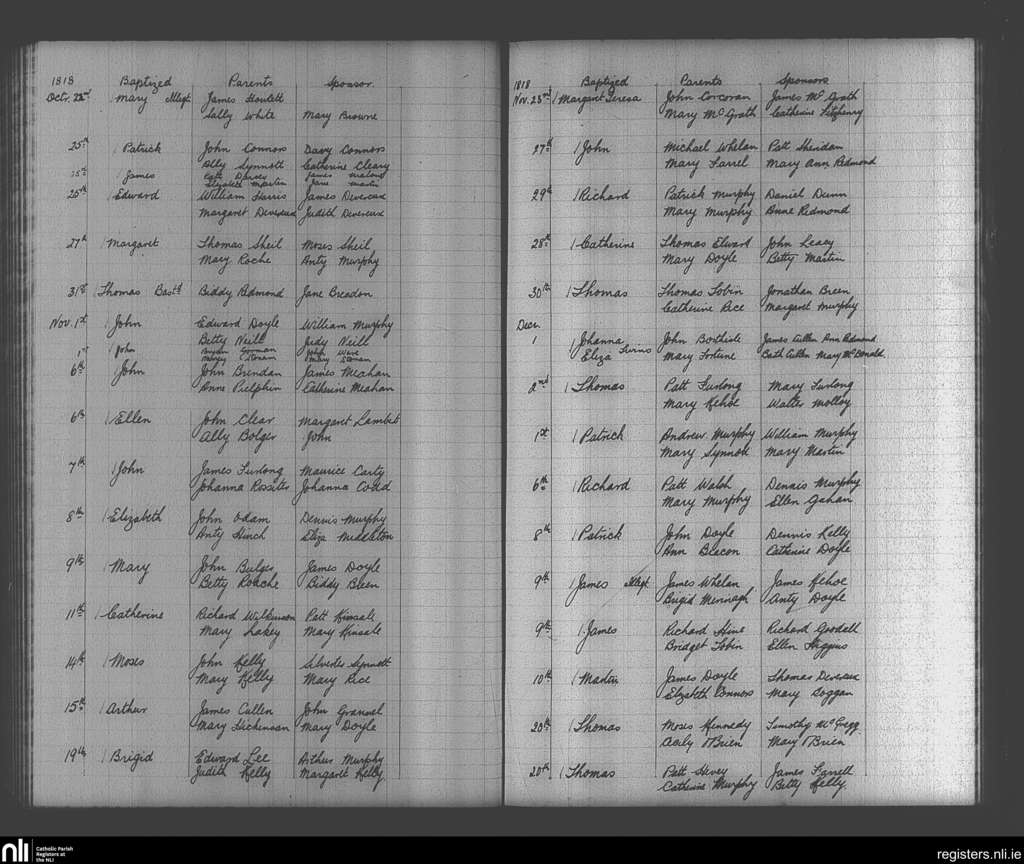 1818 Baptized Parents Sponsor
Octr. 22nd Mary Illegt James Howlett
Sally White Mary Browne
25th Patrick John Connors Davy Connors
Ally Synnott Catherine Cleary
25th James Patt Darcey James Malone
Elizabeth Martin Jane Martin
26th Edward William Harris James Devereux
Margaret Devereux Judith Devereux
27th Margaret Thomas Sheil Moses Sheil
Mary Roche Anty Murphy
31st Thomas Bastd Biddy Redmond Jane Breadon
Nov. 1st John Edward Doyle William Murphy
Betty Neill Judy Neill
1st John Bryan Gorman John Ware
Margy Cronan Mary Cronan
6th John John Brendan James Meahan
Anne Pielphin Catherine Meahan
6th Ellen John Clear Margaret Lambert
Ally Bolger John
7th John James Furlong Maurice Carty
Johanna Rossiter Johanna Codd
8th Elizabeth John Adam Dennis Murphy
Anty Hinch Eliza Middleton
9th Mary John Bulger James Doyle
Betty Roache Biddy Breen
11th Catherine Richard Wilkinson Patt Kinsale
Mary Lakey Mary Kinsale
14th Moses John Kelly Silvester Synnott
Mary Kelly Mary Rice
15th Arthur James Cullen John Grannel
Mary Dickenson Mary Doyle
19th Brigid Edward Lee Arthur Murphy
Judith Kelly Margaret Kelly
1818 Baptized Parents Sponsors
Nov. 23rd Margaret Teresa John Corcoran James McGrath
Mary McGrath Catherine Fitzhenry
27th John Michael Whelan Patt Sheridan
Mary Farrel Mary Ann Redmond
29th Richard Patrick Murphy Daniel Dunn
Mary Murphy Anne Redmond
28th Catherine Thomas Elward John Leacy
Mary Doyle Betty Martin
30th Thomas Thomas Tobin Jonathan Breen
Catherine Rice Margaret Murphy
Decr.
1 Johanna John Bosthile James Cullen Ann Redmond
Eliza Twins Mary Fortune Cath Cullen Mary McDonald
2nd Thomas Patt Furlong Mary Furlong
Mary Kehoe Walter Molloy
1st Patrick Andrew Murphy William Murphy
Mary Synnott Mary Martin
6th Richard Patt Walsh Dennis Murphy
Mary Murphy Ellen Gahan
8th Patrick John Doyle Dennis Kelly
Ann Beacon Catherine Doyle
9th James Illegt James Whelan James Kehoe
Brigid Mernagh Anty Doyle
9th James Richard Hine Richard Goodall
Bridget Tobin Ellen Higgins
10th Martin James Doyle Thomas Devereux
Elizabeth Connors Mary Doggan
20th Thomas Moses Kennedy Timothy McGregg
Aaly O'Brien Mary O'Brien
20th Thomas Patt Hevey James Farrell
Catherine Murphy Betty Kelly.
nli Catholic Parish
Registers at
the NLI
registers.nli.ie